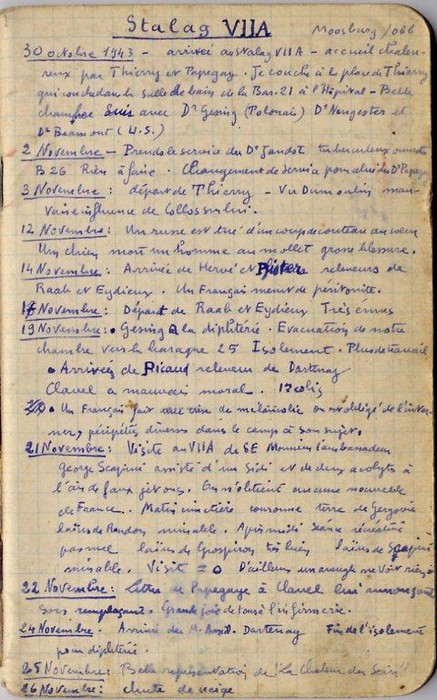 Stalag VIIA
Moosburg/Obb
30 octobre 1943 - arrivée au Stalag VIIA - accueil chaleu-
reux par Thierry et Papegay. Je couche à la place de Thierry
qui couche dans la salle de bains de la Bar. 21 à l'Hôpital - Belle
chambre suis avec Dr Gesing (Polonais) Dr Neugester et
Dr Beamont (U.S.)
2 Novembre - Prends le service du Dr Jandot tuberculeux
B 26 Rien à faire. Changement de service pour celui du Dr Papegay
3 Novembre : départ de Thierry - Vu Dumoulin mau-
vaise influence de
12 Novembre : Un russe est tué d'un coup de couteau au coeur
Un chien mord un homme au mollet grosse blessure.
14 Novembre : Arrivée de Hervé et Pfister releveurs de
Raab et Eydieux. Un Français meurt de péritonite.
17 Novembre : Départ de Raab et Eydieux Très émus
19 Novembre : Gesing a la diphtérie. Evacuation de notre
chambre vers la baraque 25 Isolement. Plus de travail
• Arrivée de Picaud releveur de Dartenay
Clavel a mauvais moral. 17 colis
• Un Français fait une crise de mélancolie on est obligé de l'inter-
ner, péripéties diverses dans le camp à son sujet.
21 Novembre : Visite au VIIA de SE Monsieur l'ambassadeur
george Scapini assisté d'un Sidi et de deux acolytes à
l'air de faux jetons. On n'obtient aucune nouvelle
de France. Matin cimetière couronne terre de Gergovie
laïus de minable. Après midi séance récréative
pas mal laïus de très bien laïus de Scapini
minable. Visite = 0 D'ailleurs un aveugle ne voit rien
22 Novembre : Lettre de Papegay à Clavel lui annonçant
son remplaçant. Grande joie de toute l'infirmerie.
24 Novembre. Arrivée du M. Dartenay Fin de l'isolement
pour diphtérie.
25 Novembre : Belle représentation de "La Chaleur du Sein"
26 Novembre : chute de neige